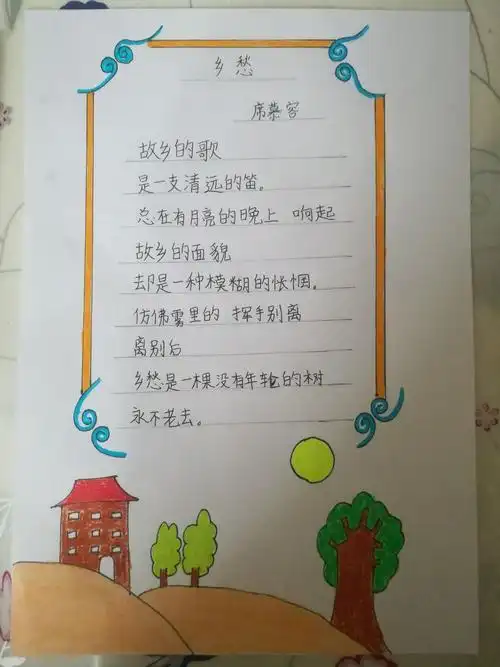 乡愁
席慕容
故乡的歌
是一支清远的笛。
总在有月亮的晚上 响起
故乡的面貌
却是一种模糊的怅惘。
仿佛雾里的 挥手别离
离别后
乡愁是一棵没有年轮的树
永不老去。